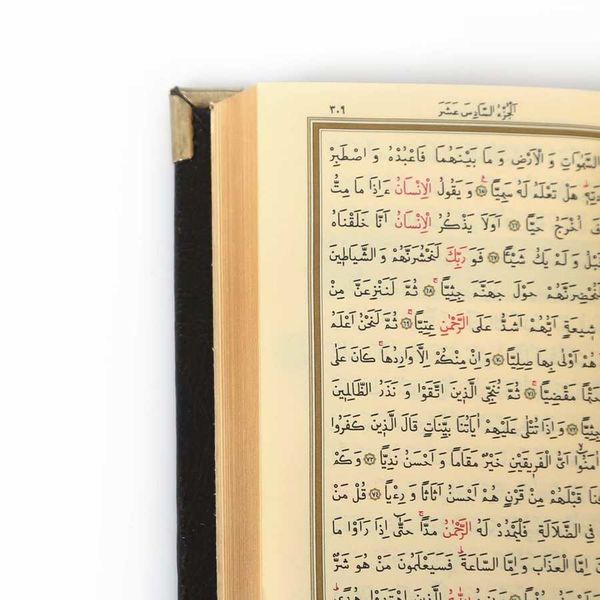 الجزء السادس عشر
٣٠٩
السَّمٰوَاتِ وَ الْاَرْضِ وَ مَا بَيْنَهُمَا فَاعْبُدْهُ وَ اصْطَبِرْ
هَلْ تَعْلَمُ لَهُ سَمِيًّا ﴿٦٥﴾ وَ يَقُولُ الْاِنْسَانُ ءَاِذَا مَا مِتُّ
اُخْرَجُ حَيًّا ﴿٦٦﴾ اَوَلَا يَذْكُرُ الْاِنْسَانُ اَنَّا خَلَقْنَاهُ
وَ لَمْ يَكُ شَيْئًا ﴿٦٧﴾ فَوَ رَبِّكَ لَنَحْشُرَنَّهُمْ وَ الشَّيَاطِينَ
لَنُحْضِرَنَّهُمْ حَوْلَ جَهَنَّمَ جِثِيًّا ﴿٦٨﴾ ثُمَّ لَنَنْزِعَنَّ مِنْ
شِيعَةٍ اَيُّهُمْ اَشَدُّ عَلَى الرَّحْمٰنِ عِتِيًّا ﴿٦٩﴾ ثُمَّ لَنَحْنُ اَعْلَمُ
هُمْ اَوْلٰى بِهَا صِلِيًّا ﴿٧٠﴾ وَ اِنْ مِنْكُمْ اِلَّا وَارِدُهَا كَانَ عَلٰى
حَتْمًا مَقْضِيًّا ﴿٧١﴾ ثُمَّ نُنَجِّي الَّذِينَ اتَّقَوْا وَ نَذَرُ الظَّالِمِينَ
جِثِيًّا ﴿٧٢﴾ وَ اِذَا تُتْلٰى عَلَيْهِمْ اٰيَاتُنَا بَيِّنَاتٍ قَالَ الَّذِينَ كَفَرُوا
اٰمَنُوا اَىُّ الْفَرِيقَيْنِ خَيْرٌ مَقَامًا وَ اَحْسَنُ نَدِيًّا ﴿٧٣﴾ وَ كَمْ
قَبْلَهُمْ مِنْ قَرْنٍ هُمْ اَحْسَنُ اَثَاثًا وَ رِءْيًا ﴿٧٤﴾ قُلْ مَنْ
فِي الضَّلَالَةِ فَلْيَمْدُدْ لَهُ الرَّحْمٰنُ مَدًّا حَتّٰى اِذَا رَاَوْا مَا
اِمَّا الْعَذَابَ وَ اِمَّا السَّاعَةَ فَسَيَعْلَمُونَ مَنْ هُوَ شَرٌّ